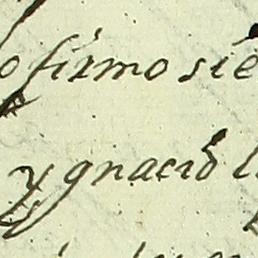 o firmo sie
ygnacio l